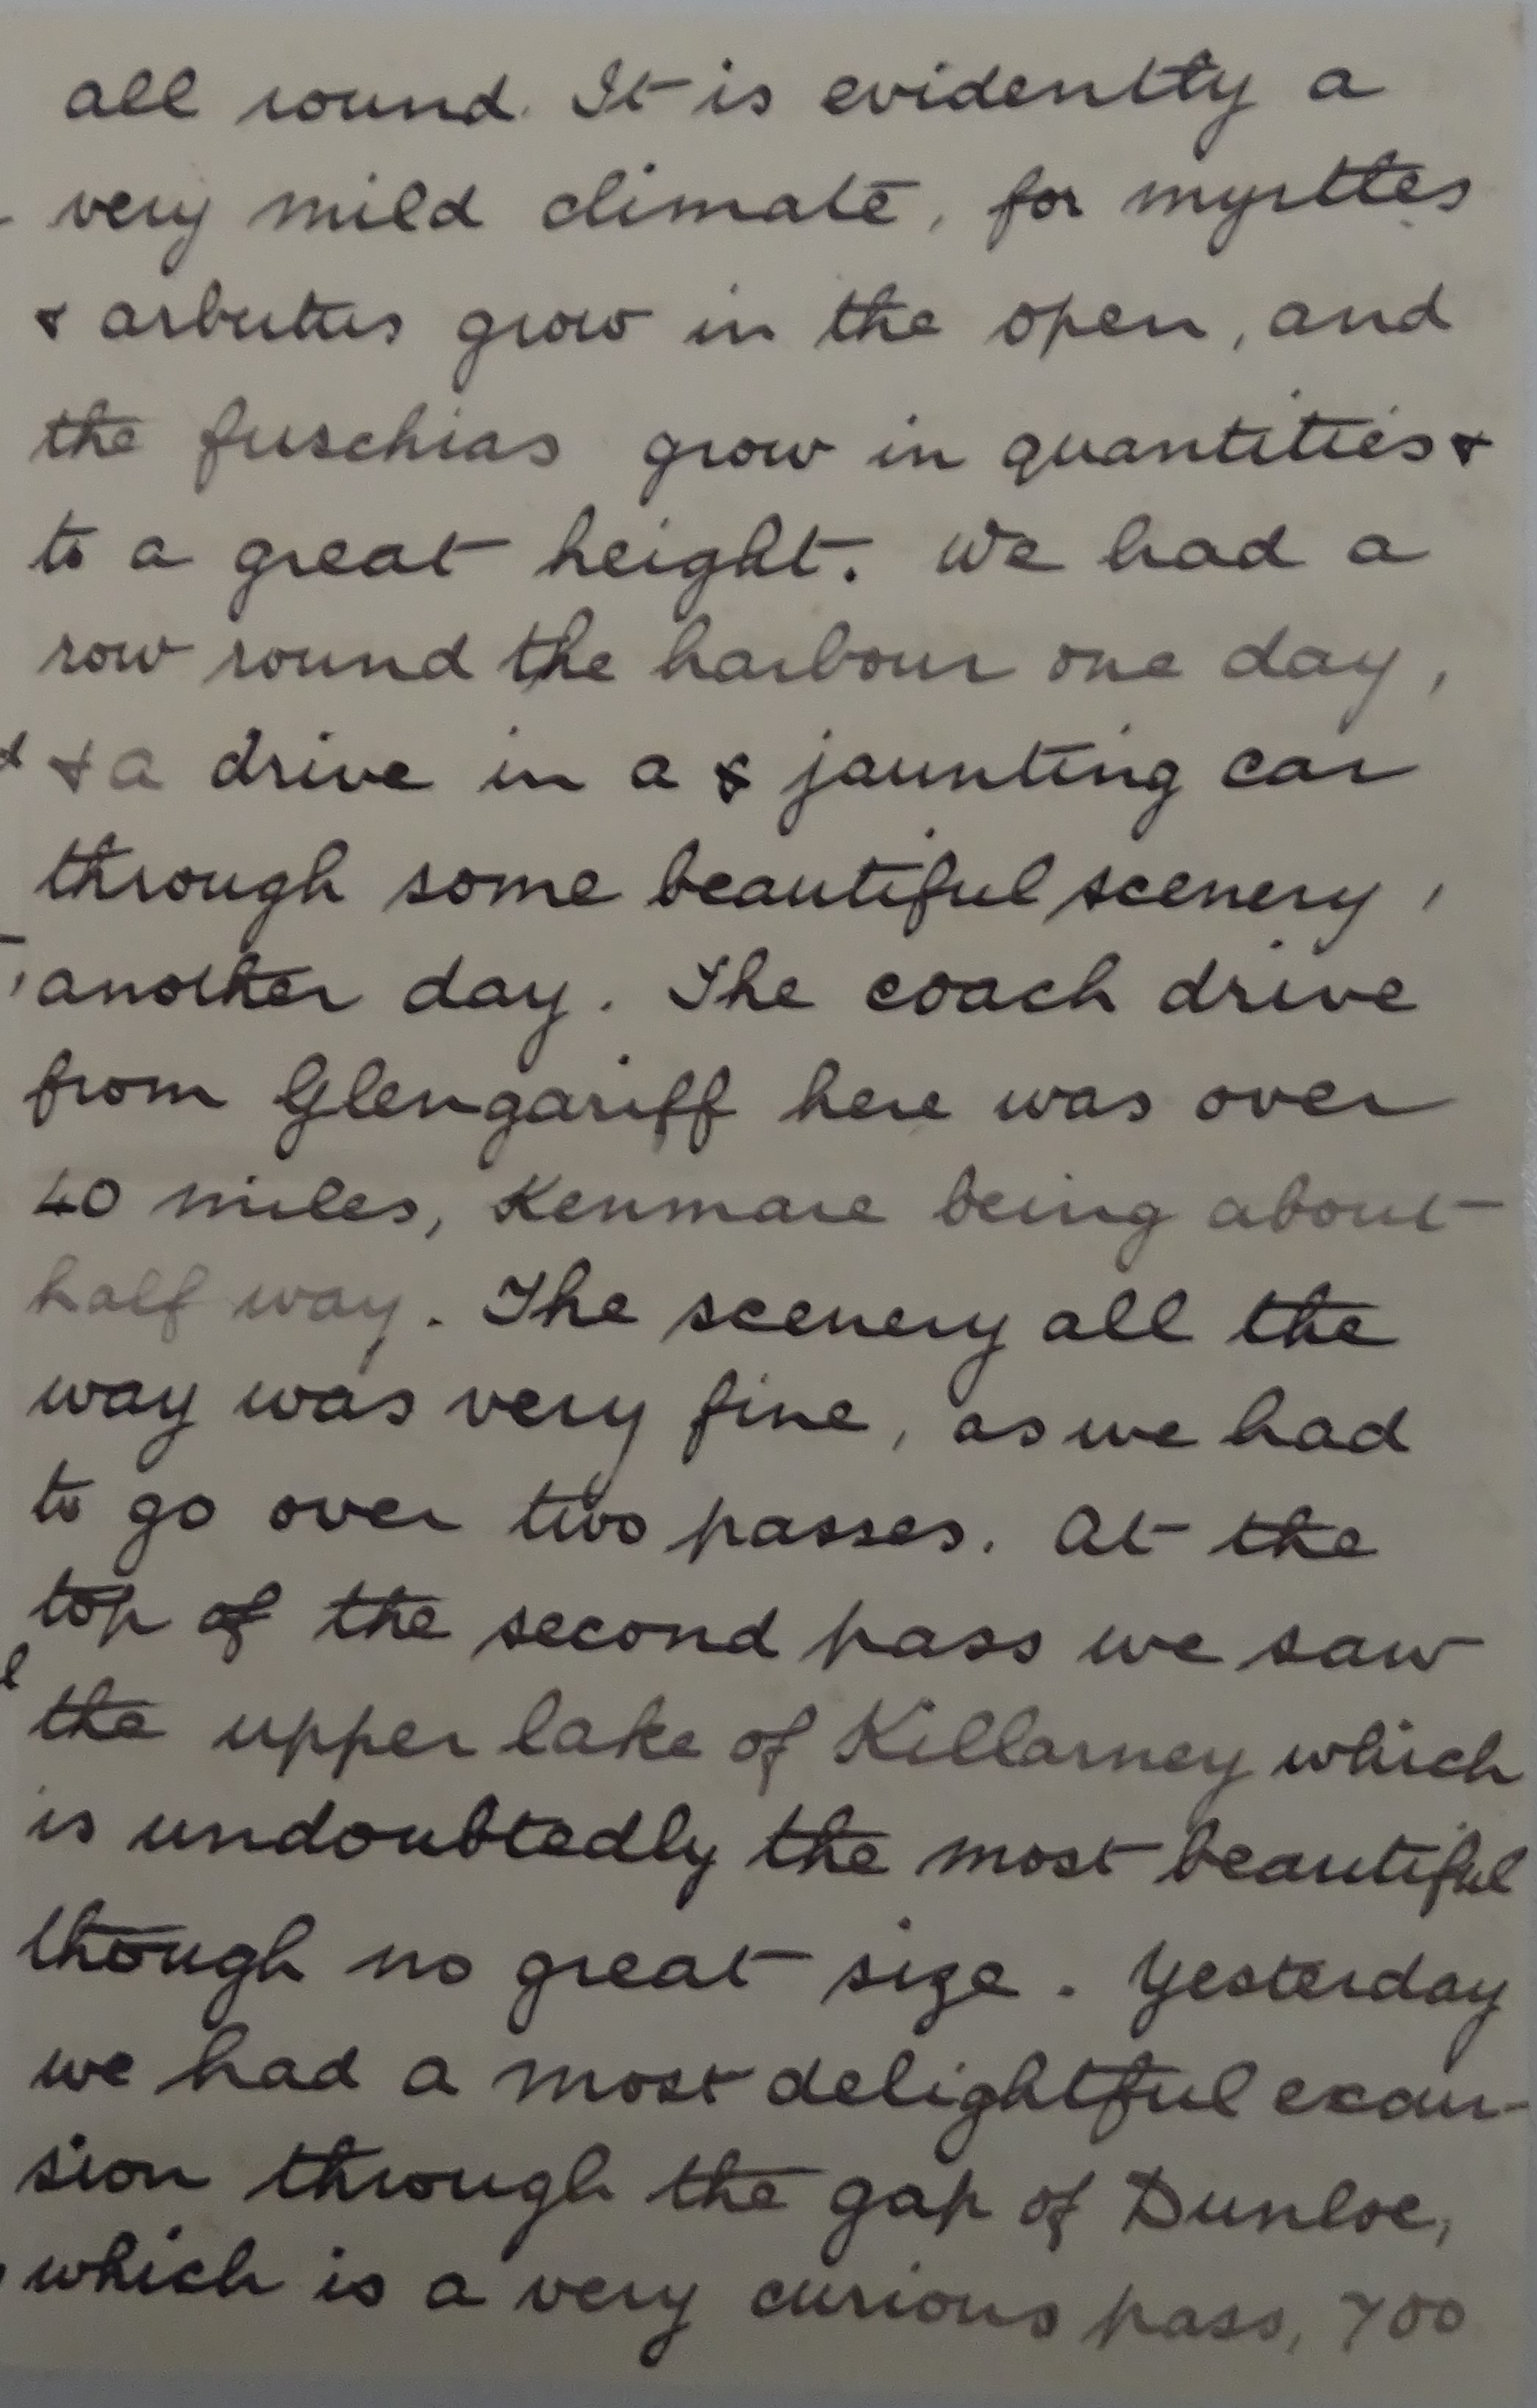 all round. It is evidently a
very mild climate, for myrtles
& arbutus grow in the open, and
the fuschias grow in quantities &
to a great height. We had a
row round the harbour one day,
& a drive in a jaunting car
through some beautiful scenery,
another day. The coach drive
from Glengariff here was over
40 miles, Kenmare being about
half way. The scenery all the
way was very fine, as we had
to go over two passes. At the
top of the second pass we saw
the upper lake of Killarney which
is undoubtedly the most beautiful
though no great size. Yesterday
we had a most delightful excur-
sion through the gap of Dunloe,
which is a very curious pass, 700